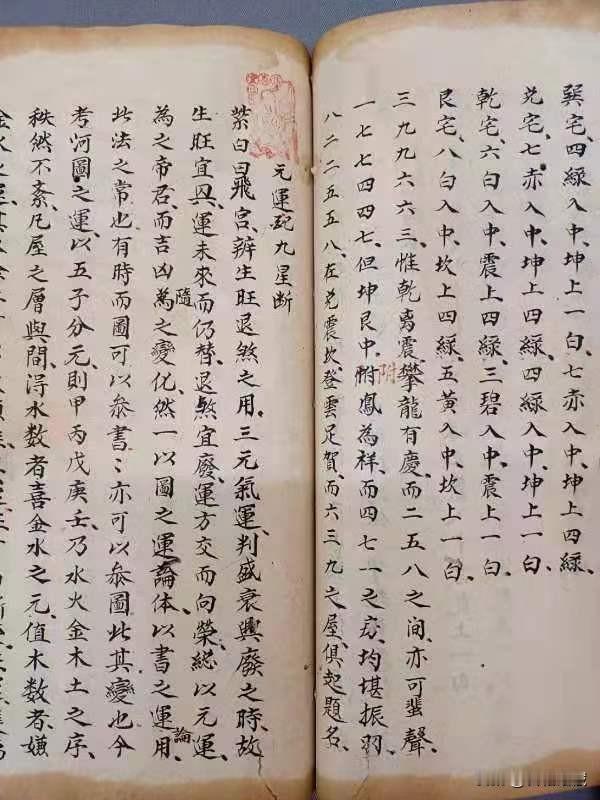 巽宅、四綠入中、坤上一白、七赤入中、坤上四綠、
兌宅、七赤入中、坤上四綠、四綠入中、坤上一白、
乾宅、六白入中、震上四綠、三碧入中、震上一白、
艮宅、八白入中、坎上四綠、五黃入中、坎上一白、
三九九六六三、惟乾离震、攀龍有慶、而二五八之间、亦可蜚聲、
一七七四四七、但坤艮中、附鳳為祥、而四七一之房、均堪振羽、
附
八二二五五八、在兌震坎、登雲足賀、而六三九之屋、俱起題名、
元運配九星断
紫白曰、飛宮、辨生旺退煞之用、三元氣運、判盛衰興廢之時、故
生旺宜興、運未來而仍替、退煞宜廢、運方交而向榮、總以元運、
為之帝君、而吉凶為之變化、然一以圖之運論体、以書之運用、
隨
論
此法之常也、有時而圖可以叅書、書亦可以叅圖、此其變也、今
考河圖之運、以五子分元、則甲丙戊庚壬、乃水火金木土之序、
秩然不紊、凡屋之層與間、得水数者、喜金水之元、值木数者、嫌